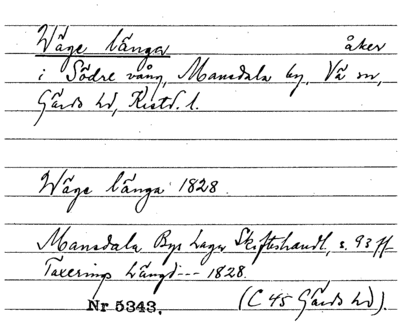 Wäge länga åker
i Södre vång, Mansdala by, Vä sn,
Gärds hd, Kristd. l.
Wäge länga 1828.
Mansdala Bys Laga Skifteshandl, s. 93 ff
Taxerings Längd --- 1828.
Nr 5343. (C 45 Gärds hd).